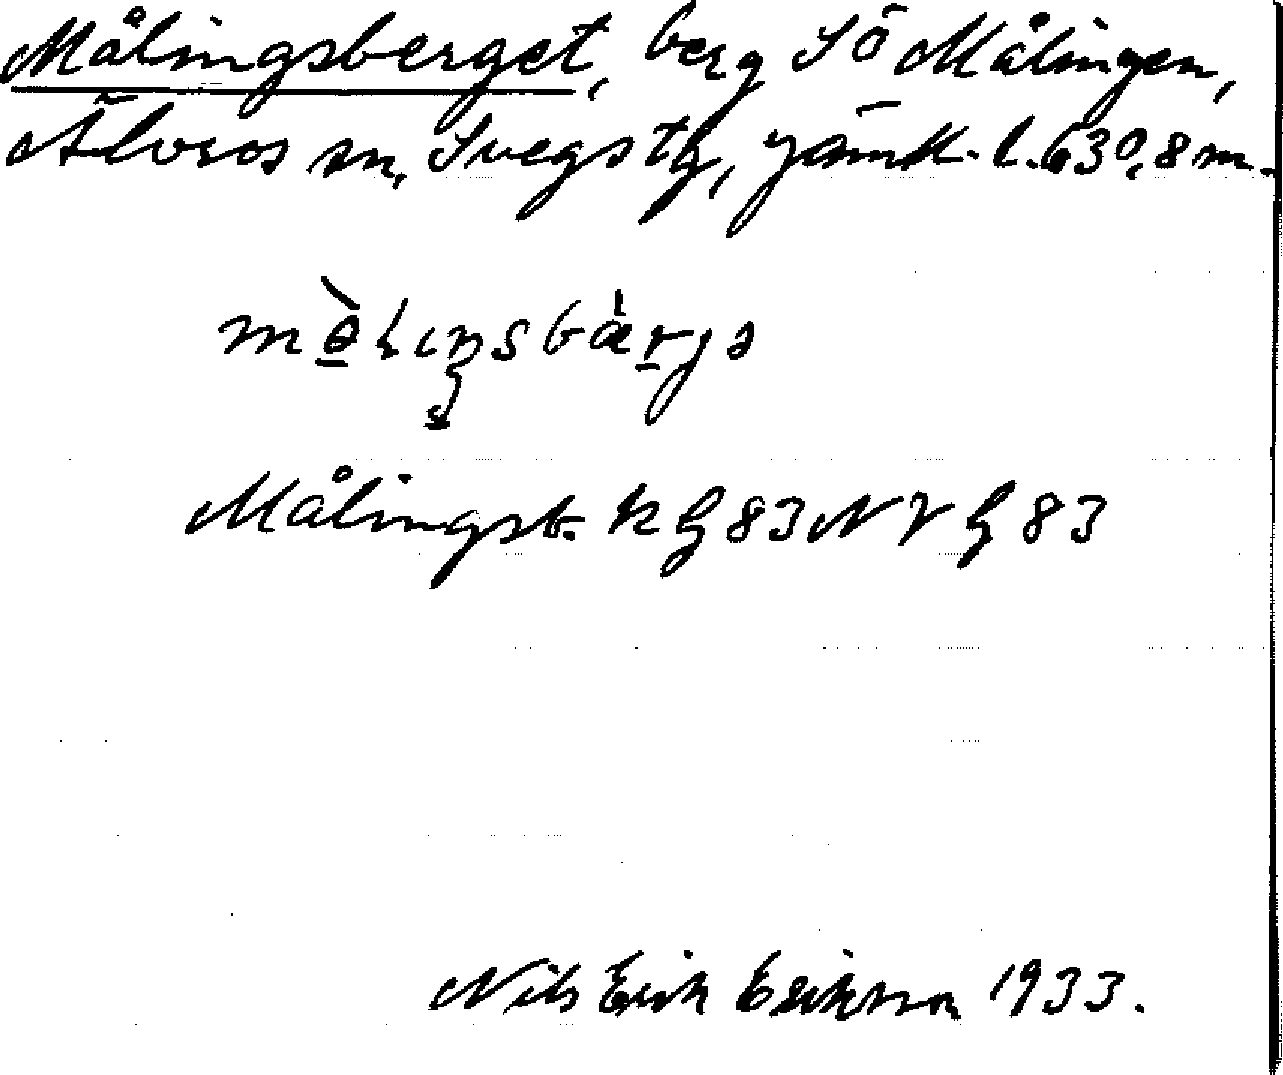 Målingsberget, berg SÖ Målingen,
Älvros sn, Svegs tg, Jämtl. l. 630,8 m.
mə̀lıŋsbærjə
Målingsb. k Gg 83 NV Gg 83
Nils Erik Eriksson 1933.